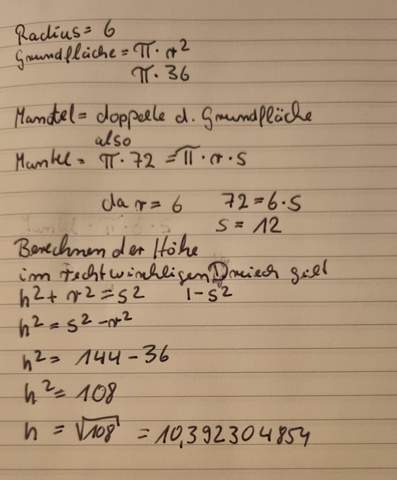 Radius = 6
Grundfläche = π · r²
π · 36
Mantel = doppelte d. Grundfläche
also
Mantel = π · 72 = π · r · s
da r = 6 72 = 6 · s
s = 12
Berechnen der Höhe
im rechtwinkligen Dreieck gilt
h² + r² = s² | - s²
h² = s² - r²
h² = 144 - 36
h² = 108
h = √108 = 10,392304854